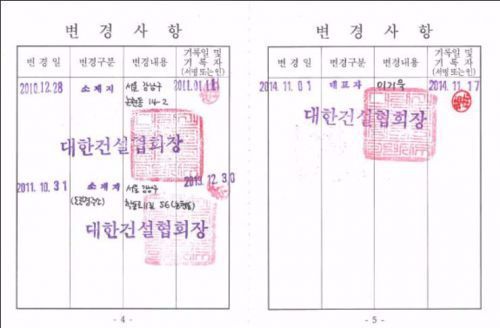 변 경 사 항
변 경 일 변경구분 변경내용 기록일 및 기 록 자 (서명또는인)
2010.12.28 소 재 지 서울 강남구 2011.01.11
논현동 14-2
대한건설협회장
2011.10.31 소 재 지 서울 강남구 2013.12.30
(도로명주소) 학동로11길 56(논현동)
대한건설협회장
- 4 -
변 경 사 항
변 경 일 변경구분 변경내용 기록일 및 기 록 자 (서명또는인)
2014.11.01 대 표 자 2014.11.17
대한건설협회장
- 5 -